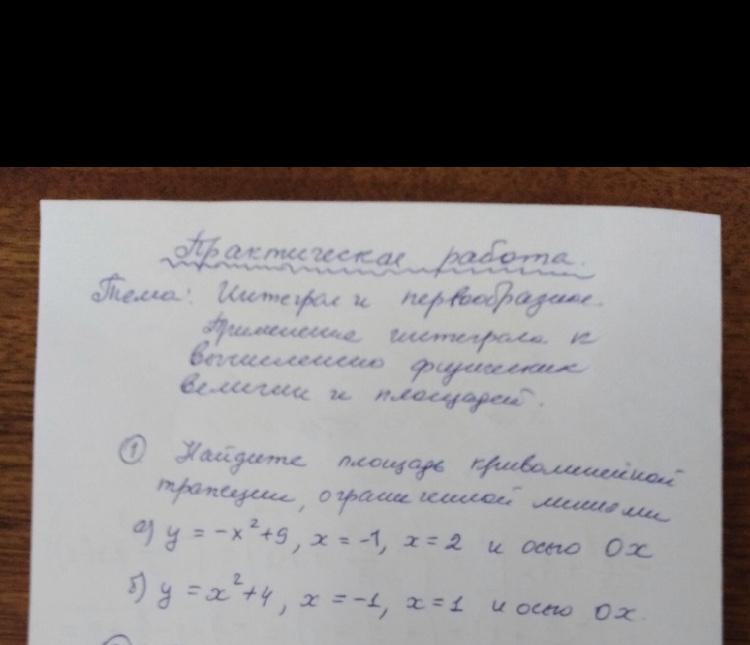 Практическая работа.
Тема: Интеграл и первообразная.
Применение интеграла к
вычислению физических
величин и площадей.
① Найдите площадь криволинейной
трапеции, ограниченной линиями
а) y = -x²+9, x = -1, x = 2 и осью Ox
б) y = x²+4, x = -1, x = 1 и осью Ox.